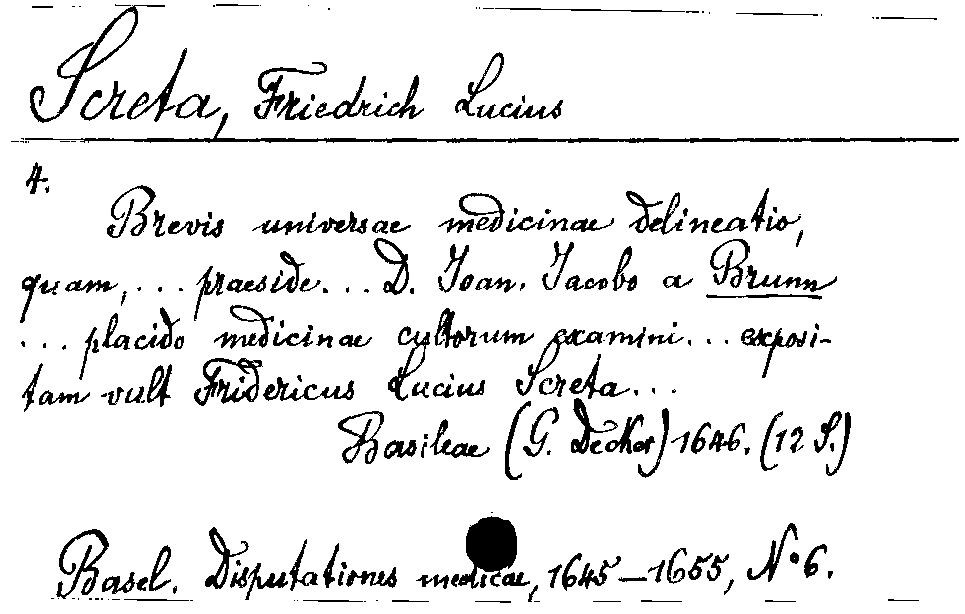 Screta, Friedrich Lucius
4.
Brevis universae medicinae delineatio,
quam, ... praeside ... D. Joan. Jacobo a Brunn
... placido medicinae cultorum examini ... exposi-
tam vult Fridericus Lucius Screta ...
Basileae (G. Decker) 1646. (12 S.)
Basel. Disputationes medicae, 1645-1655, N° 6.